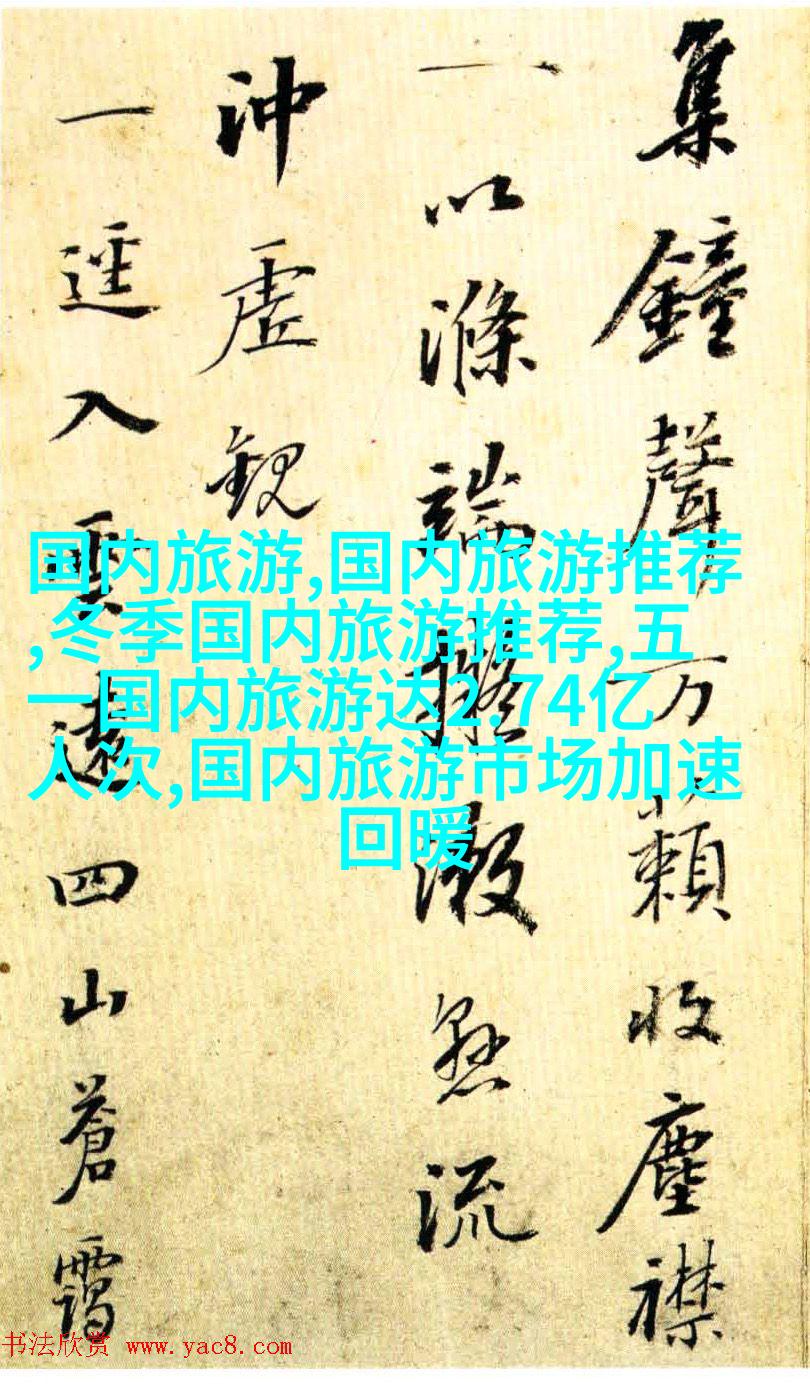 集鐘聲万籟收塵襟
一以滌端擬激無流
沖虛觀
一逕入雲遠四山蒼靄
国内旅游,国内旅游推荐
,冬季国内旅游推荐,五
一国内旅游达2.74亿
人次,国内旅游市场加速
回暖
书法欣赏 www.yac8.com